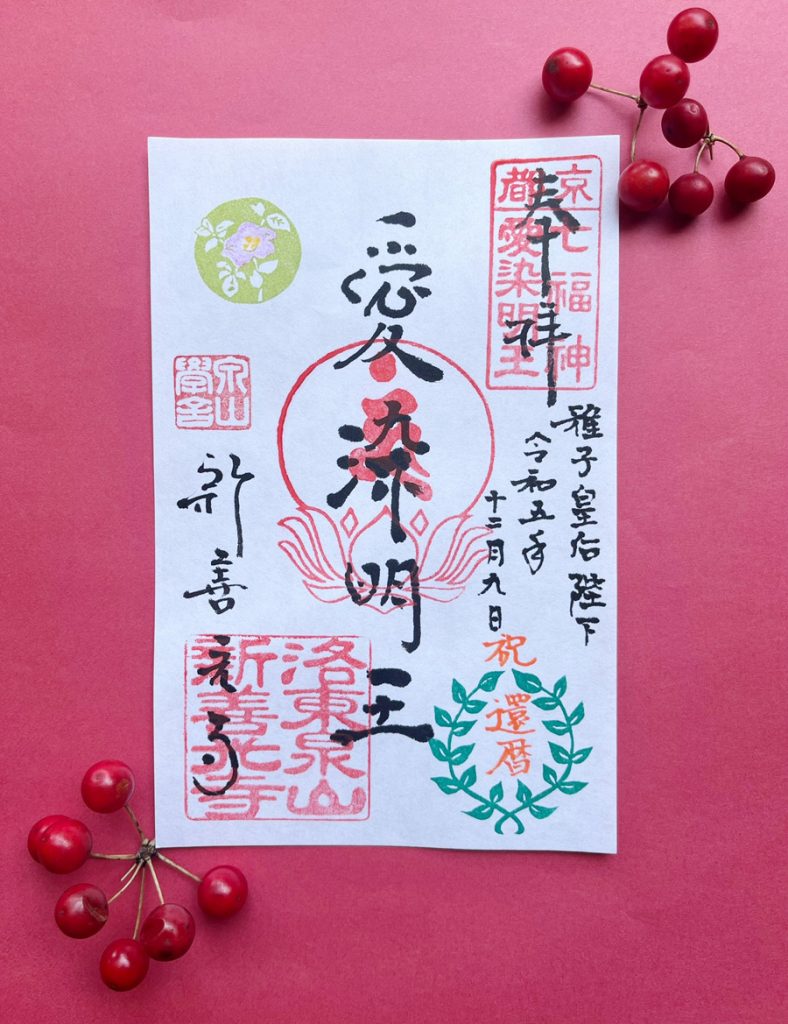 奉拝
京都
七福神
愛染明王
雅子皇后陛下
令和五年
十二月九日
祝
還暦
愛染明王
泉山
新善光寺
洛東泉山
新善光寺